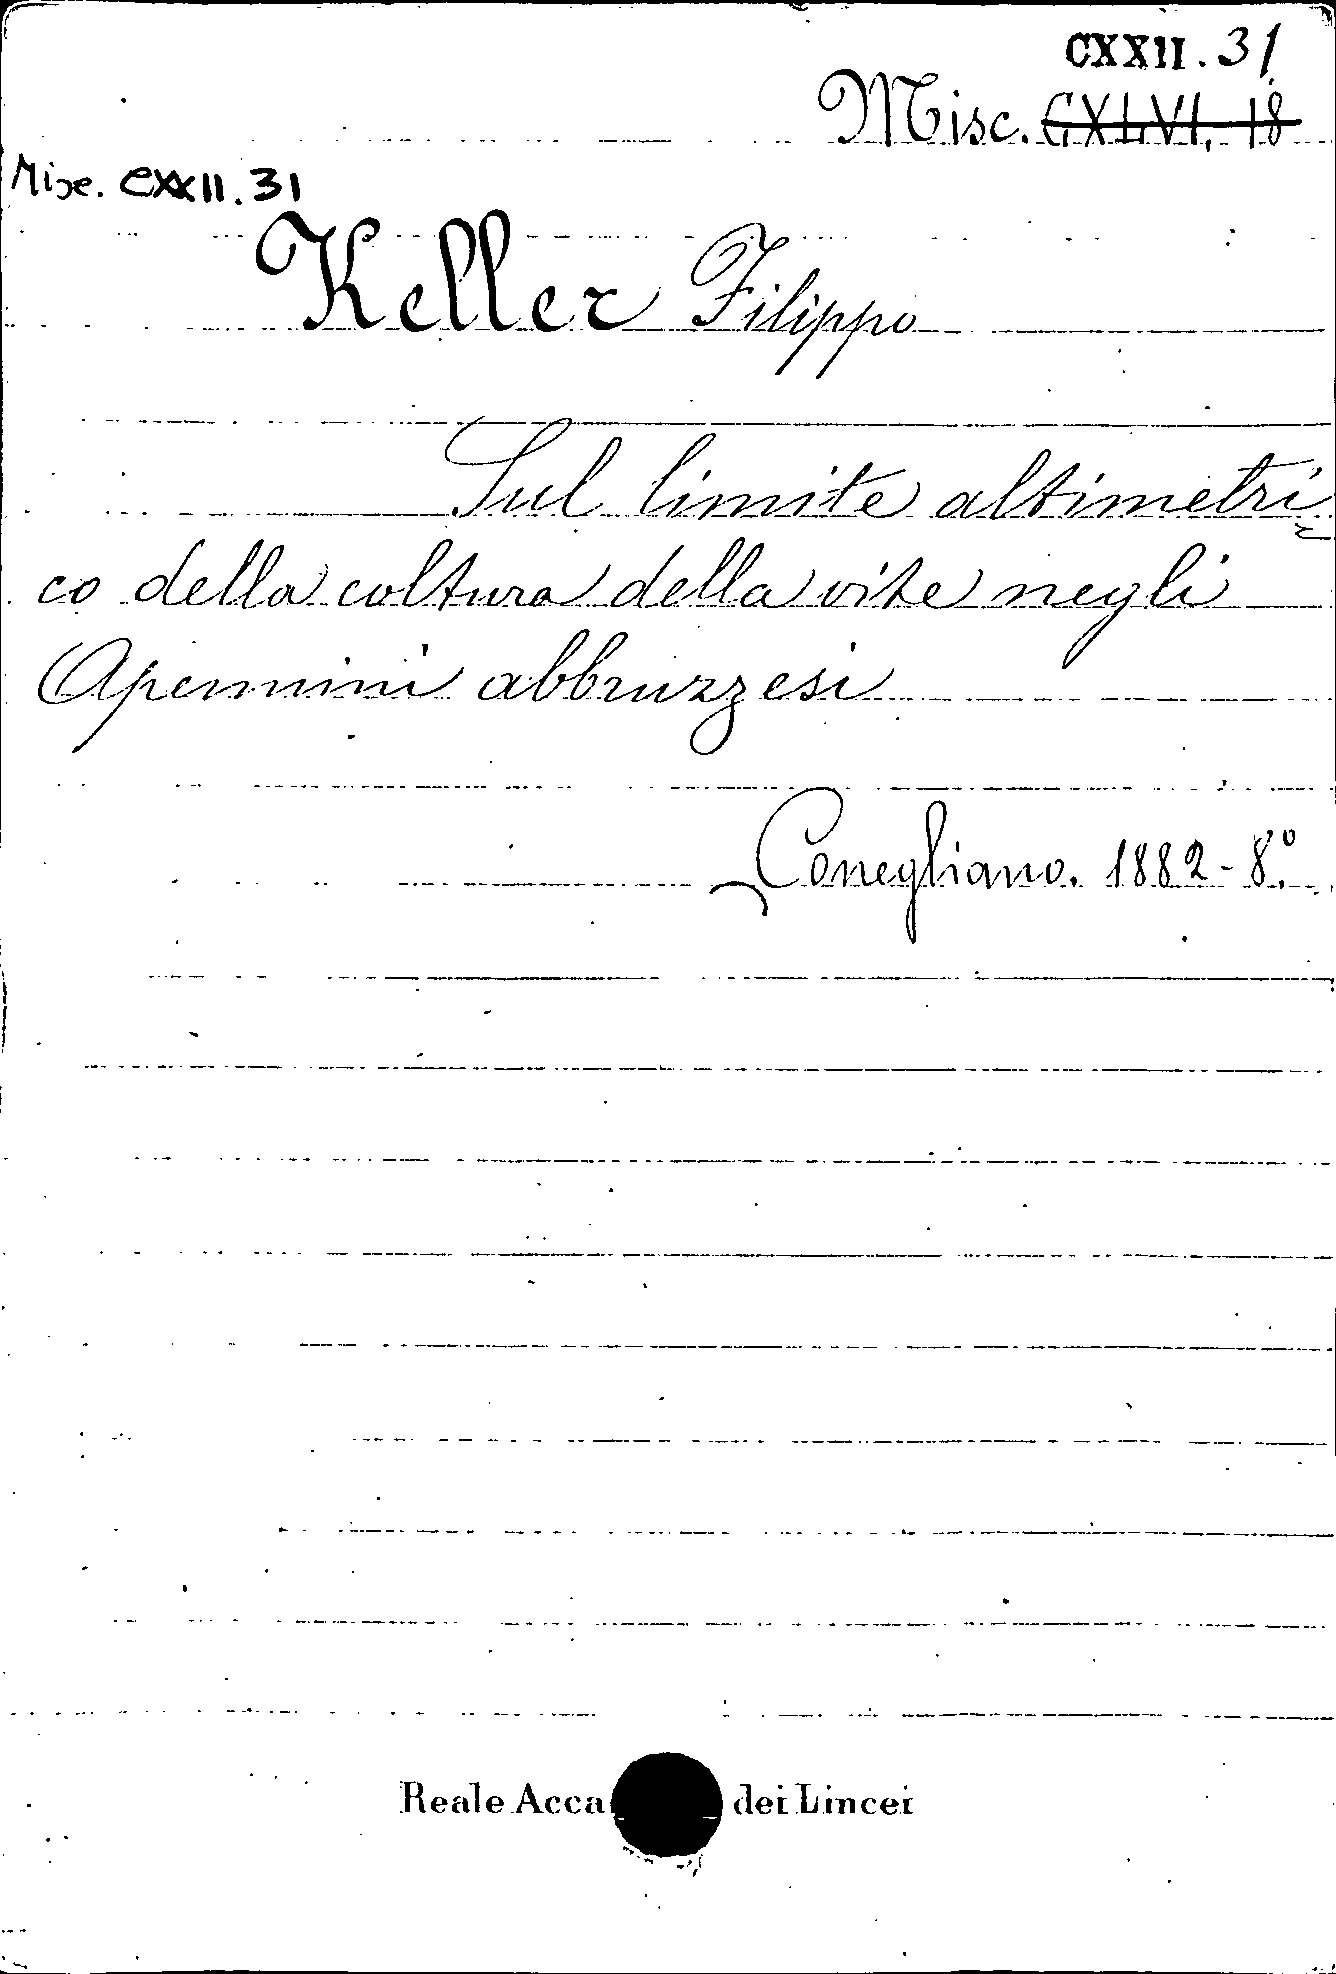 CXXII. 31
Misc. CXLVI. 18
Misc. CXXII. 31
Keller Filippo
Sul limite altimetri=
co della coltura della vite negli
Apennini abbruzzesi
Conegliano. 1882 - 8.°
Reale Acca dei Lincei